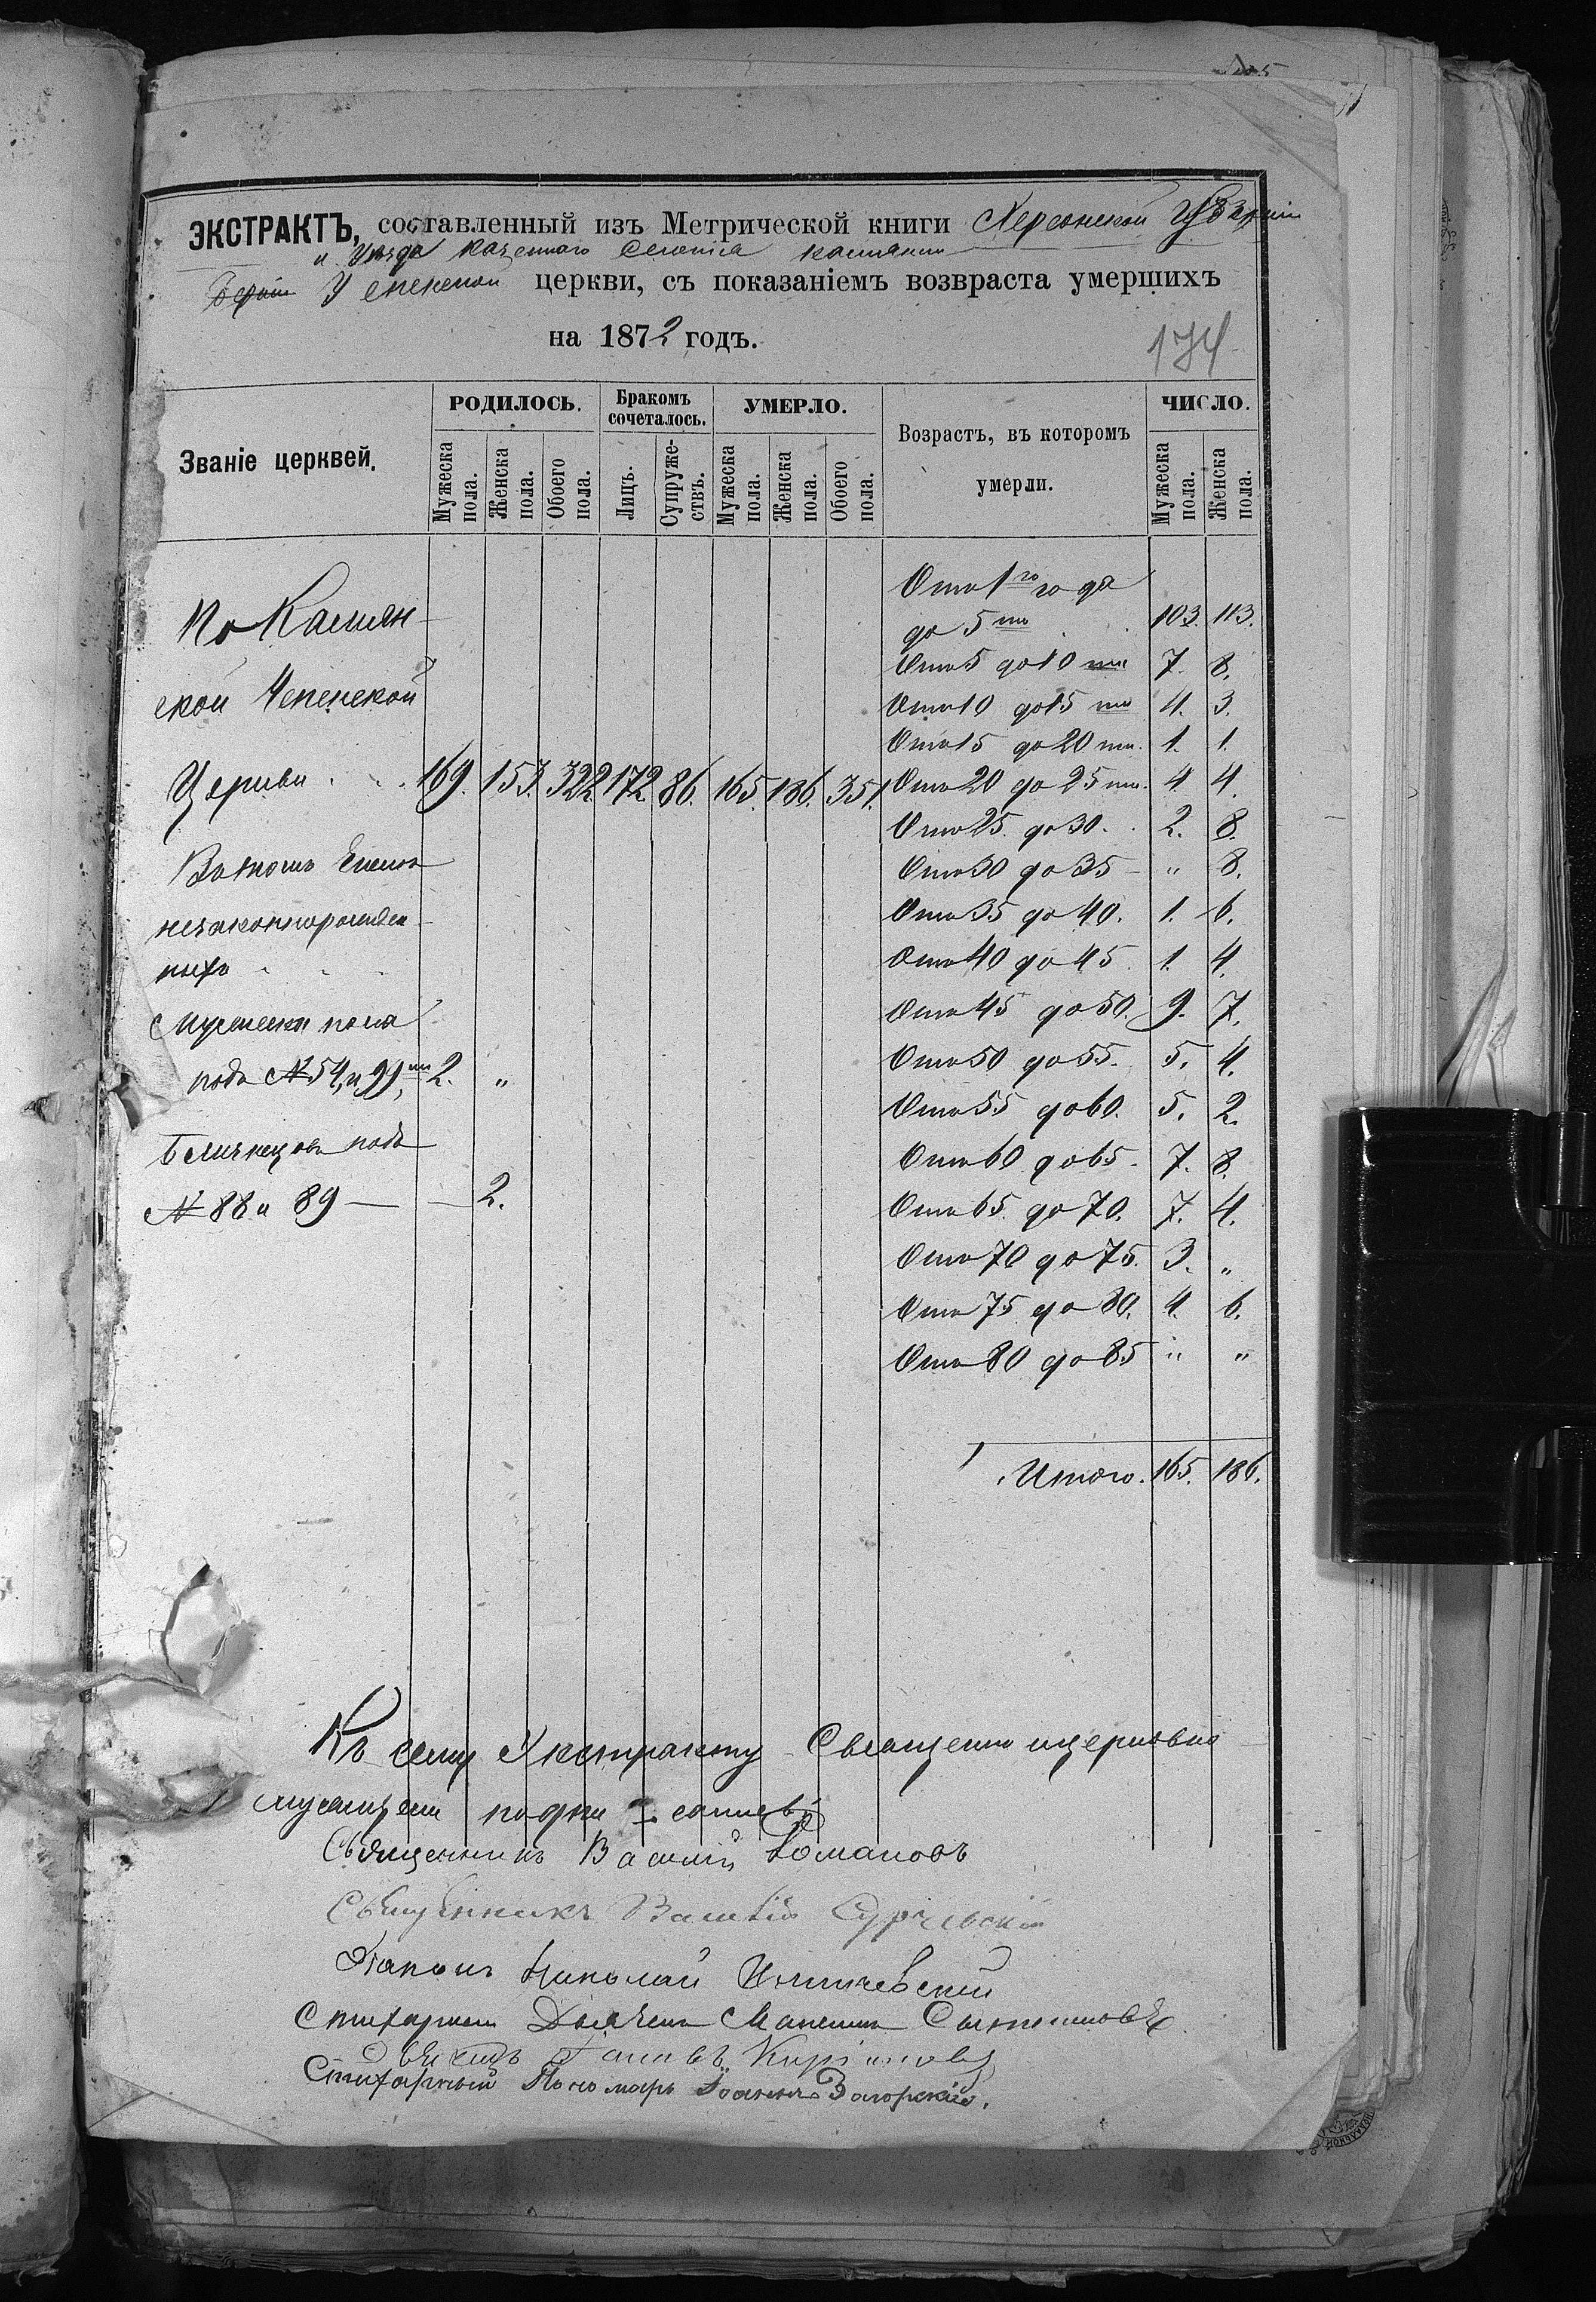 ЭКСТРАКТЪ, составленный изъ Метрической книги Херсонской Губерніи
и Уѣзда казеннаго Селенія Камянки
Успенской церкви, съ показаніемъ возвраста умершихъ
на 1872 годъ.
174
Званіе церквей.
РОДИЛОСЬ.
Бракомъ сочеталось.
УМЕРЛО.
Возрастъ, въ которомъ умерли.
ЧИСЛО.
Мужеска пола.
Женска пола.
Обоего пола.
Лицъ.
Супружествъ.
Мужеска пола.
Женска пола.
Обоего пола.
Мужеска пола.
Женска пола.
Отъ 1го года
По Камян-
до 5ти 103. 113.
Отъ 5 до 10ти 7. 8.
ской Успенской
Отъ 10 до 15ти 4. 3.
Отъ 15 до 20ти. 1. 1.
Церкви . . . 169. 153. 322. 172. 86. 165. 186. 351. Отъ 20 до 25ти. 4 4.
Отъ 25 до 30. 2. 8.
Въ томъ числѣ
Отъ 30 до 35 — " 8.
незаконнорожден-
Отъ 35 до 40. 1. 6.
ныхъ
Отъ 40 до 45. 1. 4.
Мужеска пола
Отъ 45 до 50. 9. 7.
Отъ 50 до 55. 5. 4.
подъ № 54, и 99, 2. "
Отъ 55 до 60. 5. 2.
Близнецовъ подъ
Отъ 60 до 65. 7. 8.
№ 88 и 89 — — 2.
Отъ 65 до 70. 7. 4.
Отъ 70 до 75. 3. "
Отъ 75 до 80. 4. 6.
Отъ 80 до 85 " "
Итого. 165. 186.
Къ сему Экстракту Священно церковно
служители подписались
Священникъ Василій Романовъ
Священникъ Василій
Діаконъ Николай
Стихарный Дьячекъ Максимъ
Стихарный Пономарь Іоаннъ Загорскій.